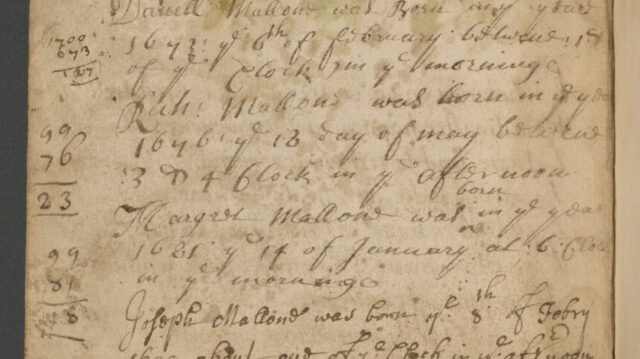 Daniell Mallone was Born in ye yeare
1673: ye 6th of february betwene 1 &
of ye Clock in ye morninge
Rich: Mallone was born in ye yea
1676 ye 13 day of may betwene
3 & 4 Clock in ye afternoon
Margret Mallone was born in ye yeare
1681: ye 14 of January at 6 Cloc
in ye morninge
Joseph Mallone was born ye 8th of Febry
about one of ye Clock in ye
1700
673
99
76
23
99
81
18